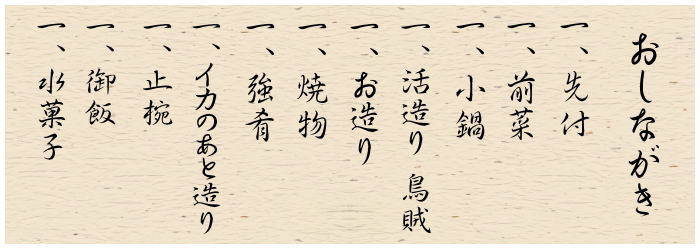 おしながき
一、先付
一、前菜
一、小鍋
一、活造り 鳥賊
一、お造り
一、焼物
一、強肴
一、イカのあと造り
一、止椀
一、御飯
一、水菓子